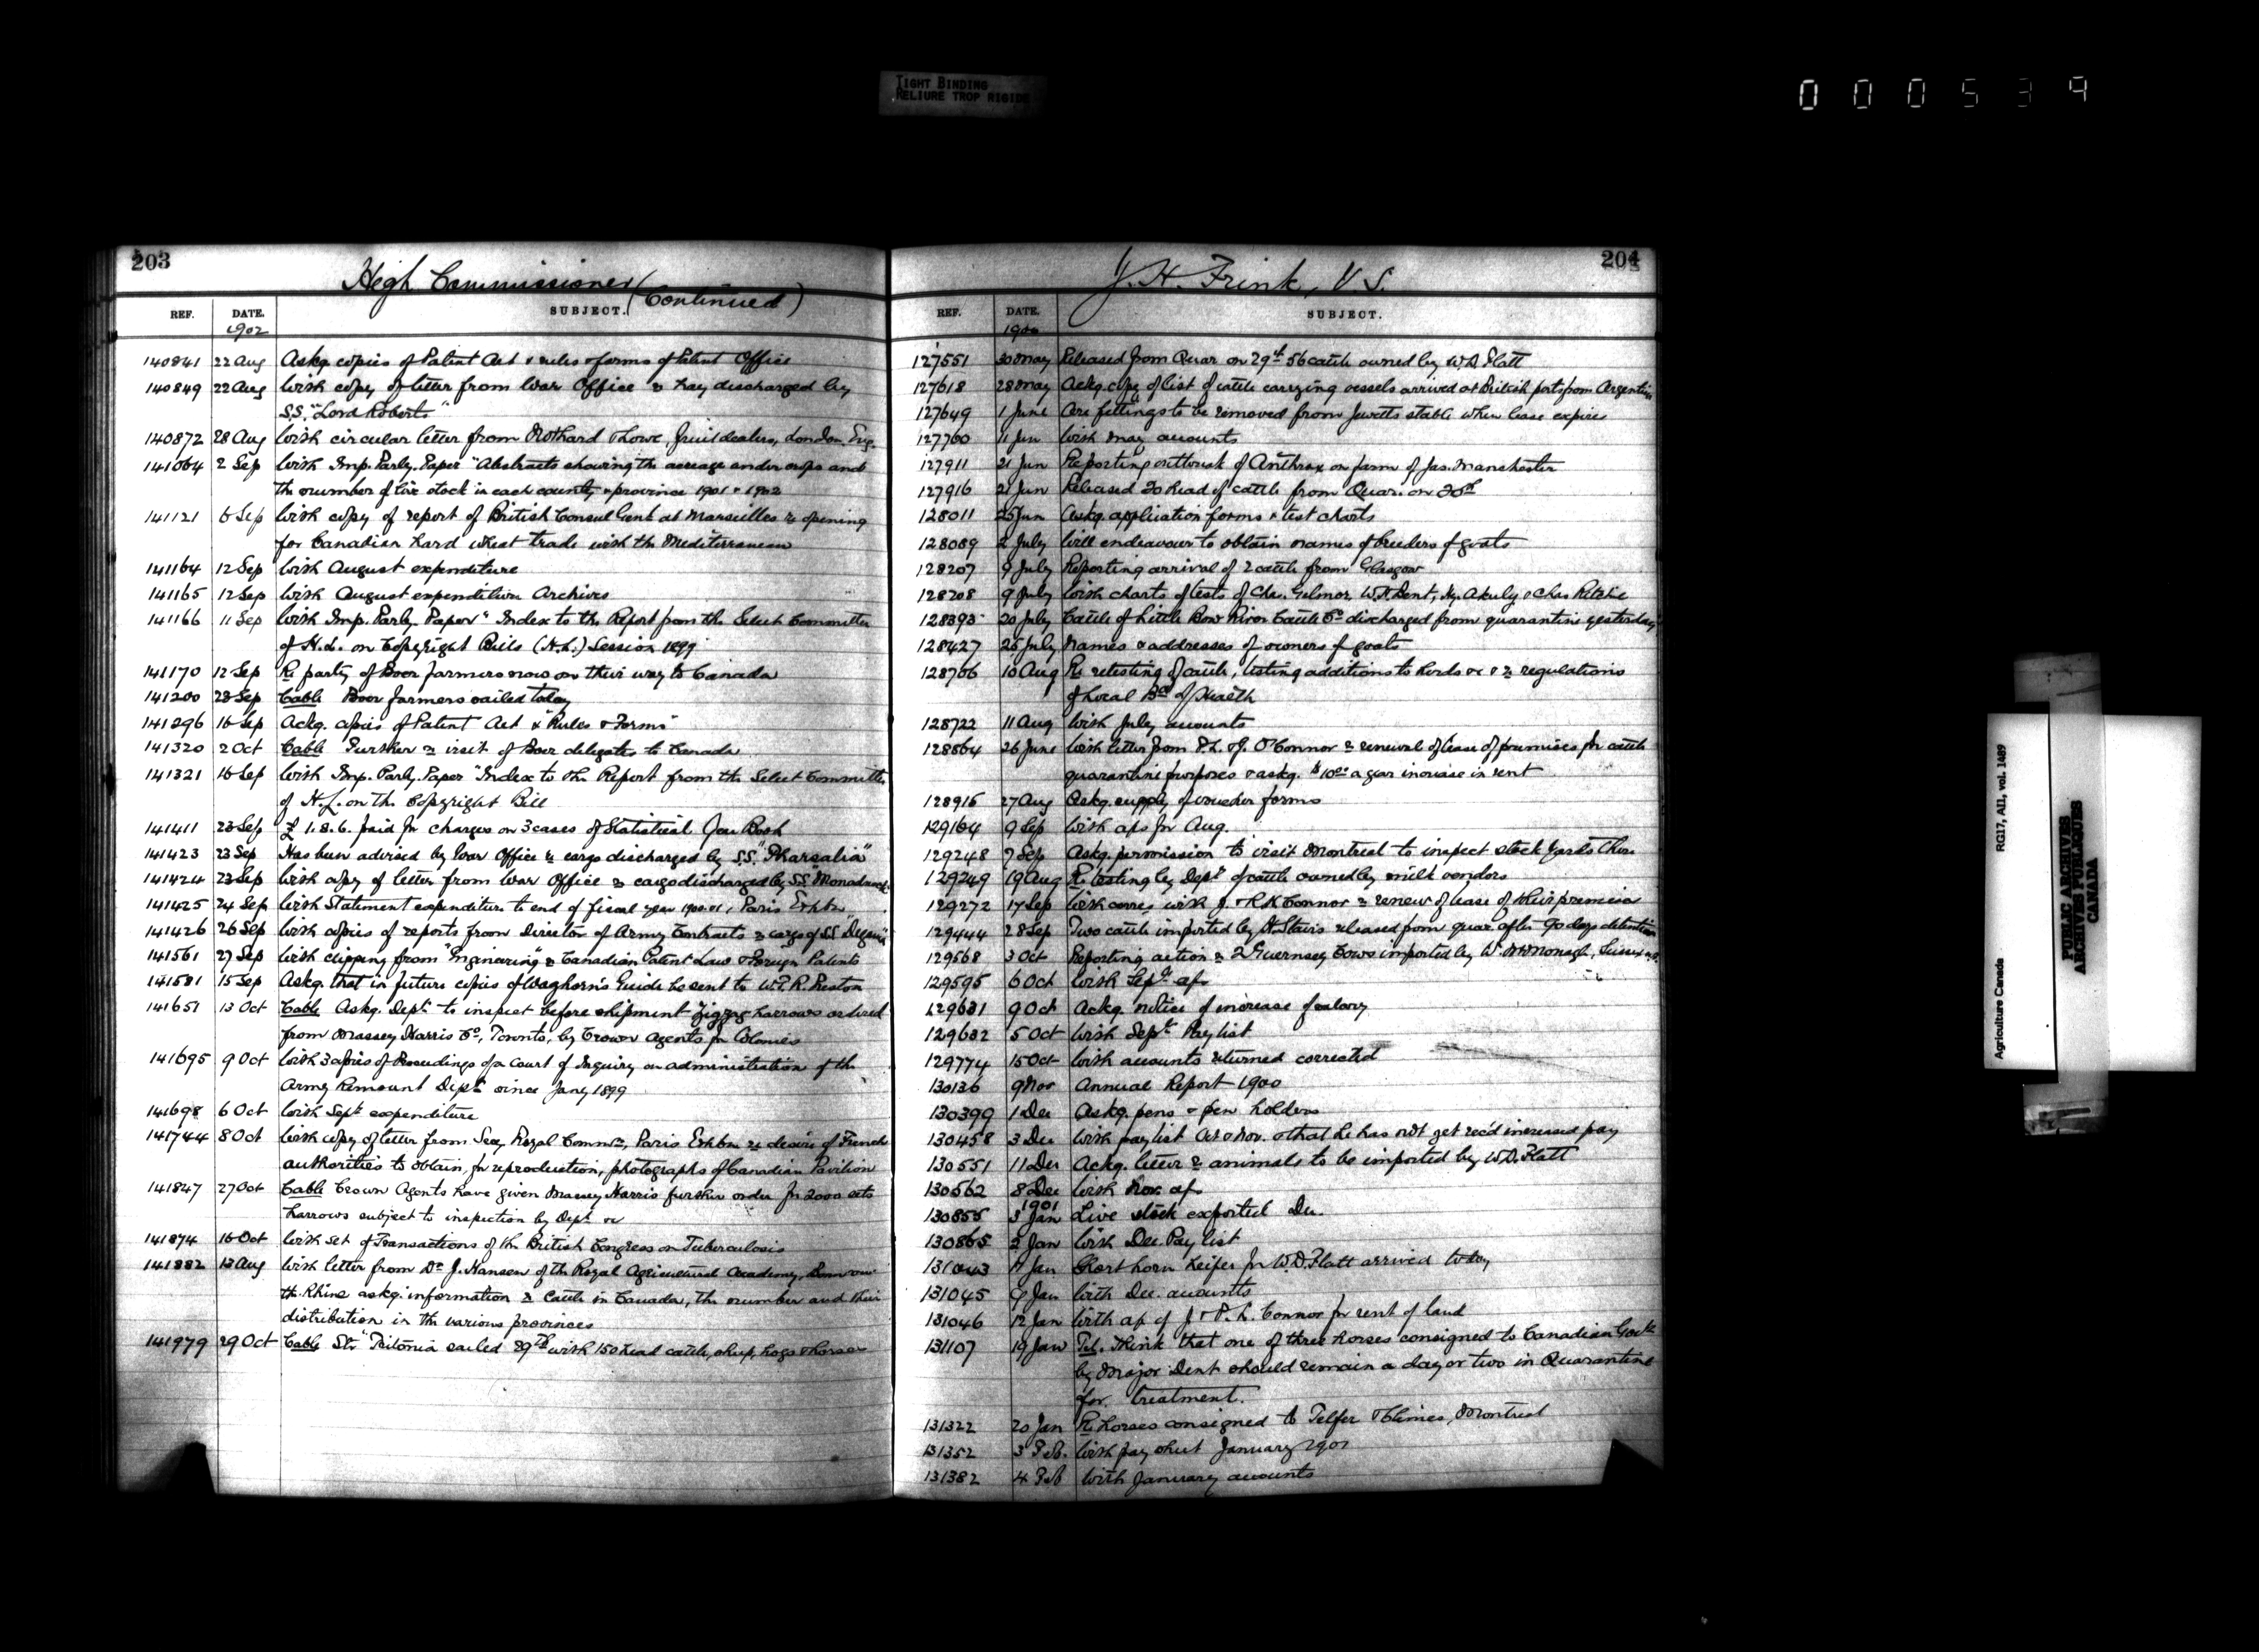 TIGHT BINDING
RELIURE TROP RIGIDE
000539
203
High Commissioner (Continued)
REF. DATE. SUBJECT.
1902
140841 22 Aug Askg. copies of Patent Act & rules & forms of Patent Office
140849 22 Aug With copy of letter from War Office re hay discharged by
S.S. "Lord Roberts"
140872 28 Aug With circular letter from Nothard & Lowe, fruit dealers, London. Eng.
141064 2 Sep With Imp. Parly. Paper "Abstracts showing the acreage under crops and
the number of live stock in each county & province 1901 & 1902
141121 6 Sep With copy of report of British Consul Genl. at Marseilles re opening
for Canadian hard wheat trade with the Mediterranean
141164 12 Sep With August expenditure
141165 12 Sep With August expenditure Archives
141166 11 Sep With Imp. Parly. Paper "Index to the Report from the Select Committee
of H.L. on Copyright Bills (H.L.) Session 1899
141170 12 Sep Re party of Boer farmers now on their way to Canada
141200 23 Sep Cable Boer farmers sailed today
141296 16 Sep Ackg. copies of Patent Act & "Rules & Forms"
141320 2 Oct Cable Further re visit of Boer delegates to Canada
141321 16 Sep With Imp. Parly. Paper "Index to the Report from the Select Committee
of H.L. on the Copyright Bill
141411 23 Sep £1.8.6. paid for charges on 3 cases of Statistical Year Book
141423 23 Sep Has been advised by War Office re cargo discharged by S.S. "Pharsalia"
141424 23 Sep With copy of letter from War Office re cargo discharged by S.S. "Monadnock"
141425 24 Sep With Statement expenditure to end of fiscal year 1900-01, Paris Exhbn
141426 26 Sep With copies of reports from Director of Army Contracts re cargo of S.S.
141561 27 Sep With clipping from "Engineering" re Canadian Patent Law & Foreign Patents
141581 15 Sep Askg. that in future copies of Waghorn's Guide be sent to W.T.R. Preston
141651 13 Oct Cable Askg. Dept. to inspect before shipment Zigzag harrows ordered
from Massey Harris Co., Toronto, by Crown Agents for Colonies
141695 9 Oct With 3 copies of Proceedings of a Court of Inquiry on administration of the
Army Remount Dept. since Jany 1899
141698 6 Oct With Sept. expenditure
141744 8 Oct With copy of letter from Secy. Royal Commn., Paris Exhbn re desire of French
authorities to obtain, for reproduction, photographs of Canadian Pavilion
141847 27 Oct Cable Crown Agents have given Massey Harris further order for 2000 sets
harrows subject to inspection by Dept. &c
141874 16 Oct With set of Transactions of the British Congress on Tuberculosis
141882 13 Aug With letter from Dr. J. Hansen of the Royal Agricultural Academy, Bonn on
the Rhine askg. information re Cattle in Canada, the number and their
distribution in the various provinces
141979 29 Oct Cable Str. "Tritonia" sailed 29th with 150 head cattle, sheep, hogs & horses
204
J. H. Frink, V.S.
REF. DATE. SUBJECT.
1900
127551 30 May Released from Quar on 29th 56 cattle owned by W.D. Flatt
127618 28 May Ackg. copy of list of cattle carrying vessels arrived at British ports from Argentine
127649 1 June Are fittings to be removed from Jewetts stable when lease expires
127760 11 Jun With May accounts
127911 21 Jun Reporting outbreak of Anthrax on farm of Jas. Manchester
127916 21 Jun Released 20 head of cattle from Quar. on 20th
128011 25 Jun Askg. application forms & test charts
128089 2 July Will endeavour to obtain names of breeders of goats
128207 9 July Reporting arrival of 2 cattle from Glasgow
128208 9 July With charts of tests of Chas. Gilmor, W.H. Bent, & Chas Ritchie
128393 20 July Cattle of Little Bow River Cattle Co. discharged from quarantine yesterday
128427 25 July Names & addresses of owners of goats
128706 10 Aug Re retesting of cattle, testing additions to herds &c & re regulations
of Local Bd. of Health
128722 11 Aug With July accounts
128864 26 June With letter from P.L. & J. O'Connor re renewal of lease of premises for cattle
quarantine purposes & askg. $10.00 a year increase in rent
128915 27 Aug Askg. supply of voucher forms
129164 9 Sep With a/cs for Aug.
129248 7 Sep Askg. permission to visit Montreal to inspect stock yards there
129249 19 Aug Re testing by Dept. of cattle owned by milk vendors
129272 17 Sep With corres. with J. & R.H. Connor re renew. of lease of their premises
129444 28 Sep Two cattle imported by H. Stairs released from quar. after 90 days detention
129568 3 Oct Reporting action re 2 Guernsey Cows imported by W. McMonagle, Sussex N.B.
129595 6 Oct With Sept. a/c
129631 9 Oct Ackg. notice of increase of salary
129632 5 Oct With Sept. Pay list
129774 15 Oct With accounts returned corrected
130136 9 Nov Annual Report 1900
130399 1 Dec Askg. pens & pen holders
130458 3 Dec With pay list Oct & Nov. & that he has not yet rec'd increased pay
130551 11 Dec Ackg. letter re animals to be imported by W.D. Flatt
130562 8 Dec With Nov. a/c
1901
130855 3 Jan Live stock exported Dec.
130865 2 Jan With Dec. Pay list
131043 11 Jan Short horn heifer for W.D. Flatt arrived today
131045 9 Jan With Dec. accounts
131046 12 Jan With a/c of J. & P.L. Connor for rent of land
131107 19 Jan Tel. Think that one of three horses consigned to Canadian Govt.
by Major Dent should remain a day or two in Quarantine
for treatment.
131322 20 Jan Re horses consigned to Telfer & Climes, Montreal
131352 3 Feb. With pay sheet January 1901
131382 4 Feb With January accounts
Agriculture Canada RG17, AII, vol. 1489
PUBLIC ARCHIVES
ARCHIVES PUBLIQUES
CANADA